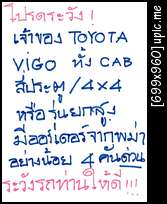 โปรดระวัง !
เจ้าของ TOYOTA
VIGO ทั้ง CAB
สี่ประตู / 4x4
หรือรุ่นยกสูง
มีออร์เดอร์จากพม่า
อย่างน้อย 4 คันด่วน
ระวังรถท่านให้ดี !!!
[699x960] upic.me